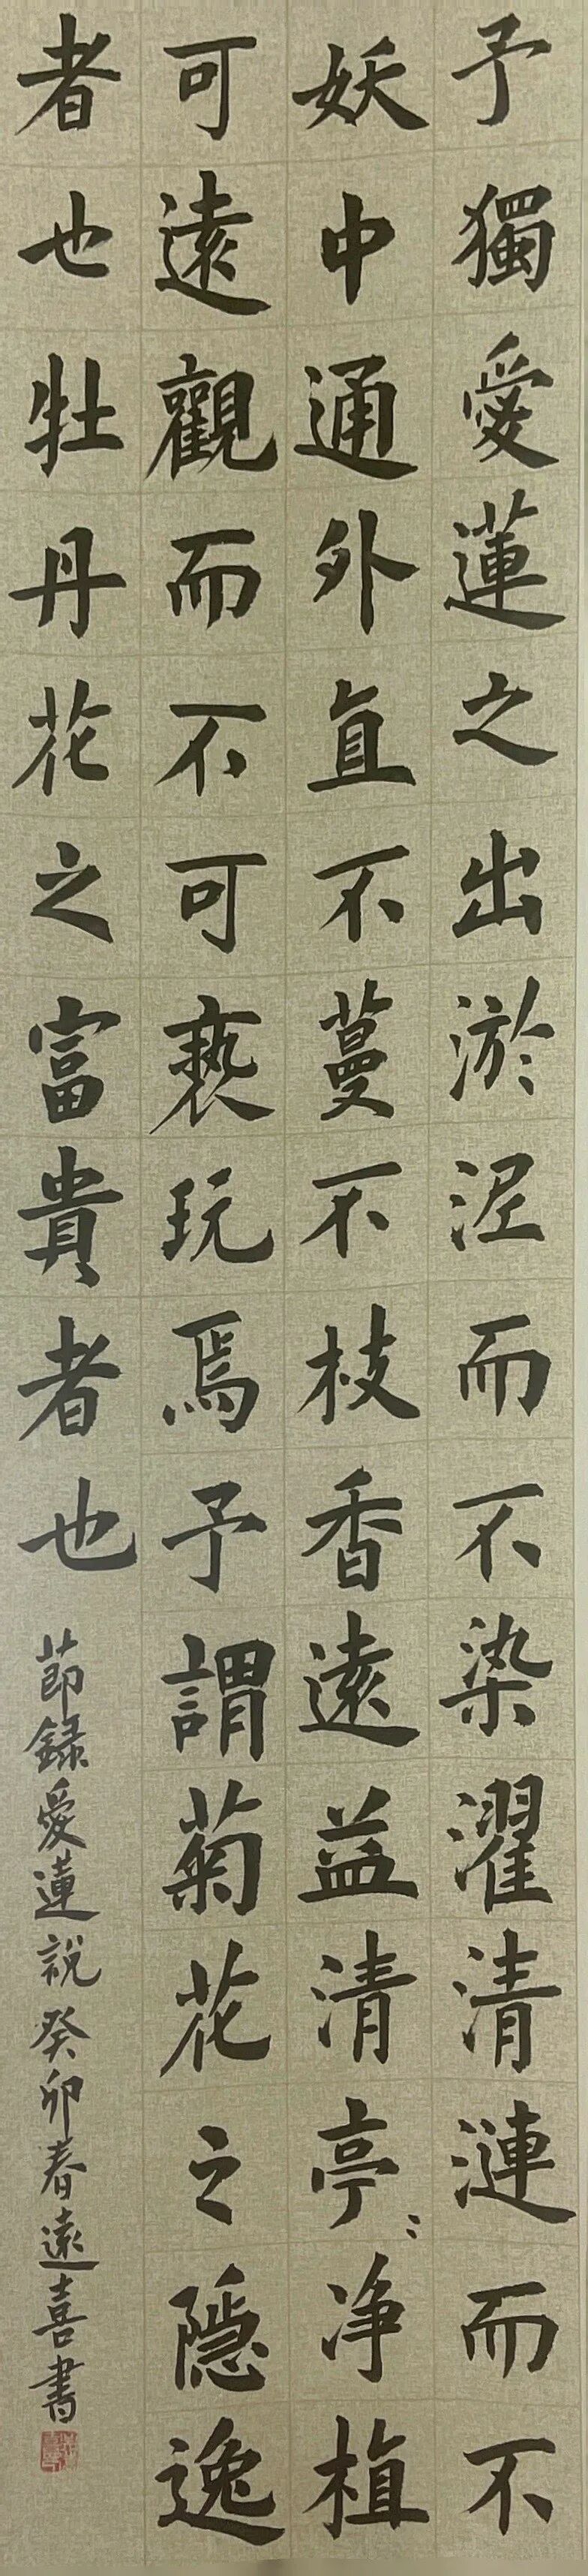 予獨愛蓮之出淤泥而不染濯清漣而不
妖中通外直不蔓不枝香遠益清亭〻净植
可遠觀而不可褻玩焉予謂菊花之隱逸
者也牡丹花之富貴者也
節録愛蓮説癸卯春遠喜書